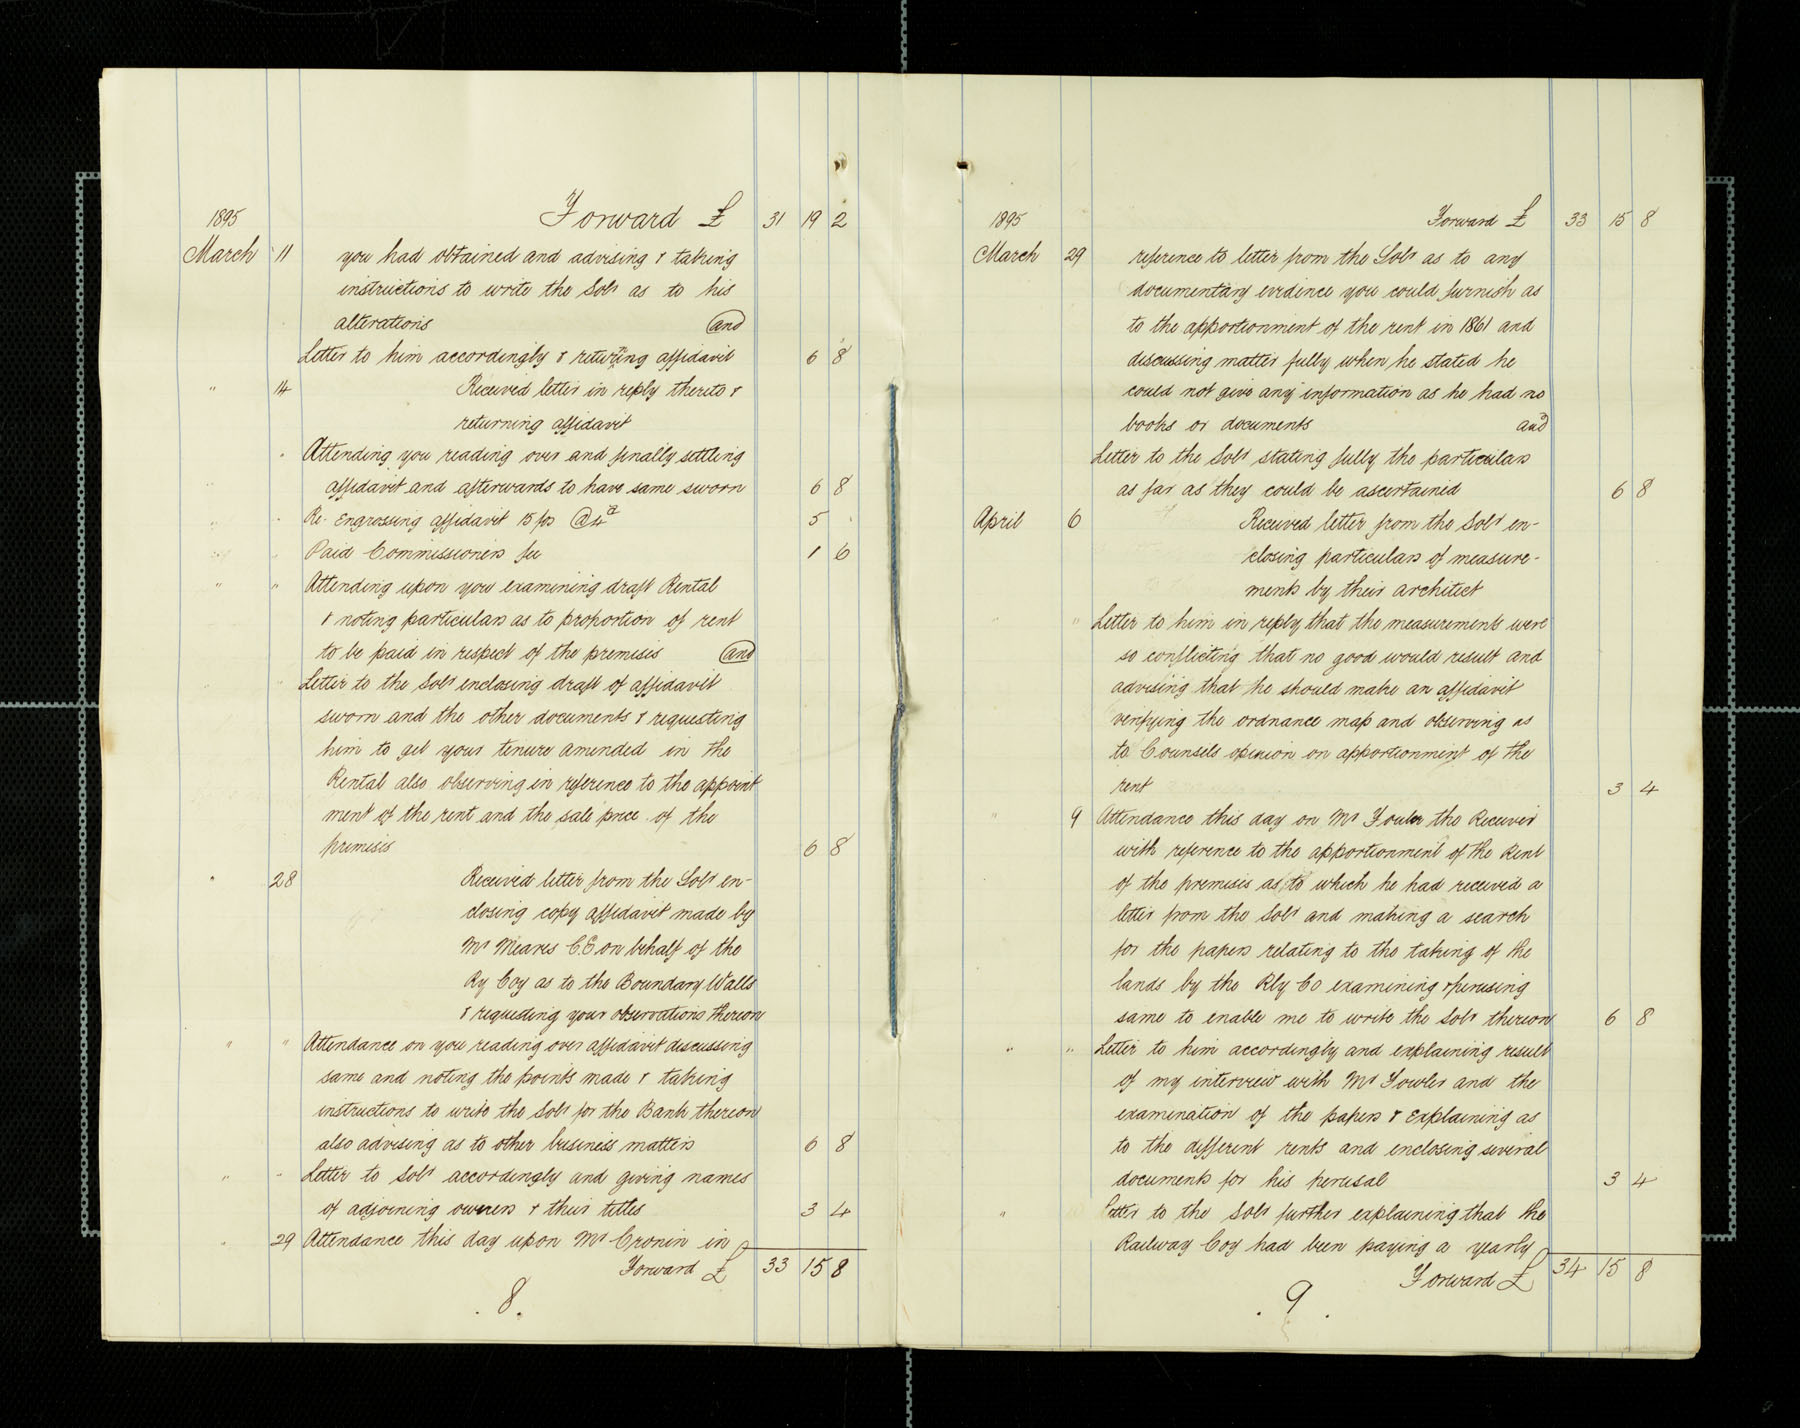 Forward £ 31 19 2
1895
March 11 you had obtained and advising & taking
instructions to write the Solr as to his
alterations and
Letter to him accordingly & returning affidavit 6 8
" 14 Received letter in reply thereto &
returning affidavit
" Attending you reading over and finally settling
affidavit and afterwards to have same sworn 6 8
" " Re-Engrossing affidavit 15 fos @ 4d 5
" " Paid Commissioners fee 1 6
" " Attending upon you examining draft Rental
& noting particulars as to proportion of rent
to be paid in respect of the premises and
Letter to the Solr enclosing draft of affidavit
sworn and the other documents & requesting
him to get your tenure amended in the
Rental also observing in reference to the appoint
ment of the rent and the sale price of the
premises 6 8
" 28 Received letter from the Solr en-
closing copy affidavit made by
Mr Meares CE on behalf of the
Ry Coy as to the Boundary Walls
& requesting your observations thereon
" " Attendance on you reading over affidavit discussing
same and noting the points made & taking
instructions to write the Solr for the Bank thereon
also advising as to other business matters 6 8
" " Letter to Solr accordingly and giving names
of adjoining owners & their titles 3 4
" 29 Attendance this day upon Mr Cronin in
Forward £ 33 15 8
8.
Forward £ 33 15 8
1895
March 29 reference to letter from the Solr as to any
documentary evidence you could furnish as
to the apportionment of the rent in 1861 and
discussing matter fully when he stated he
could not give any information as he had no
books or documents and
Letter to the Solr stating fully the particulars
as far as they could be ascertained 6 8
April 6 Received letter from the Solr en-
closing particulars of measure-
ments by their architect
" " Letter to him in reply that the measurements were
so conflicting that no good would result and
advising that he should make an affidavit
verifying the ordnance map and observing as
to Counsels opinion on apportionment of the
rent 3 4
" 9 Attendance this day on Mr Fowler the Receiver
with reference to the apportionment of the Rent
of the premises as to which he had received a
letter from the Solr and making a search
for the papers relating to the taking of the
lands by the Rly Co examining & perusing
same to enable me to write the Solr thereon 6 8
" " Letter to him accordingly and explaining result
of my interview with Mr Fowler and the
examination of the papers & explaining as
to the different rents and enclosing several
documents for his perusal 3 4
" Letter to the Solr further explaining that the
Railway Coy had been paying a yearly
Forward £ 34 15 8
9.